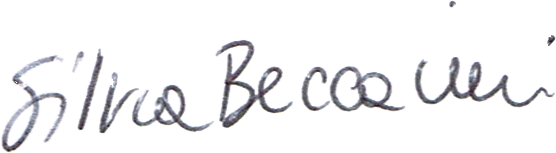 Silvia Beccaini